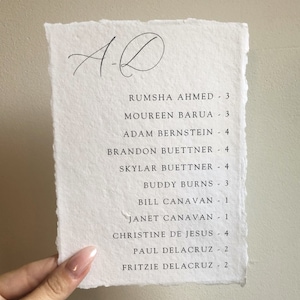 A-D
RUMSHA AHMED - 3
MOUREEN BARUA - 3
ADAM BERNSTEIN - 4
BRANDON BUETTNER - 4
SKYLAR BUETTNER - 4
BUDDY BURNS - 3
BILL CANAVAN - 1
JANET CANAVAN - 1
CHRISTINE DE JESUS - 4
PAUL DELACRUZ - 2
FRITZIE DELACRUZ - 2